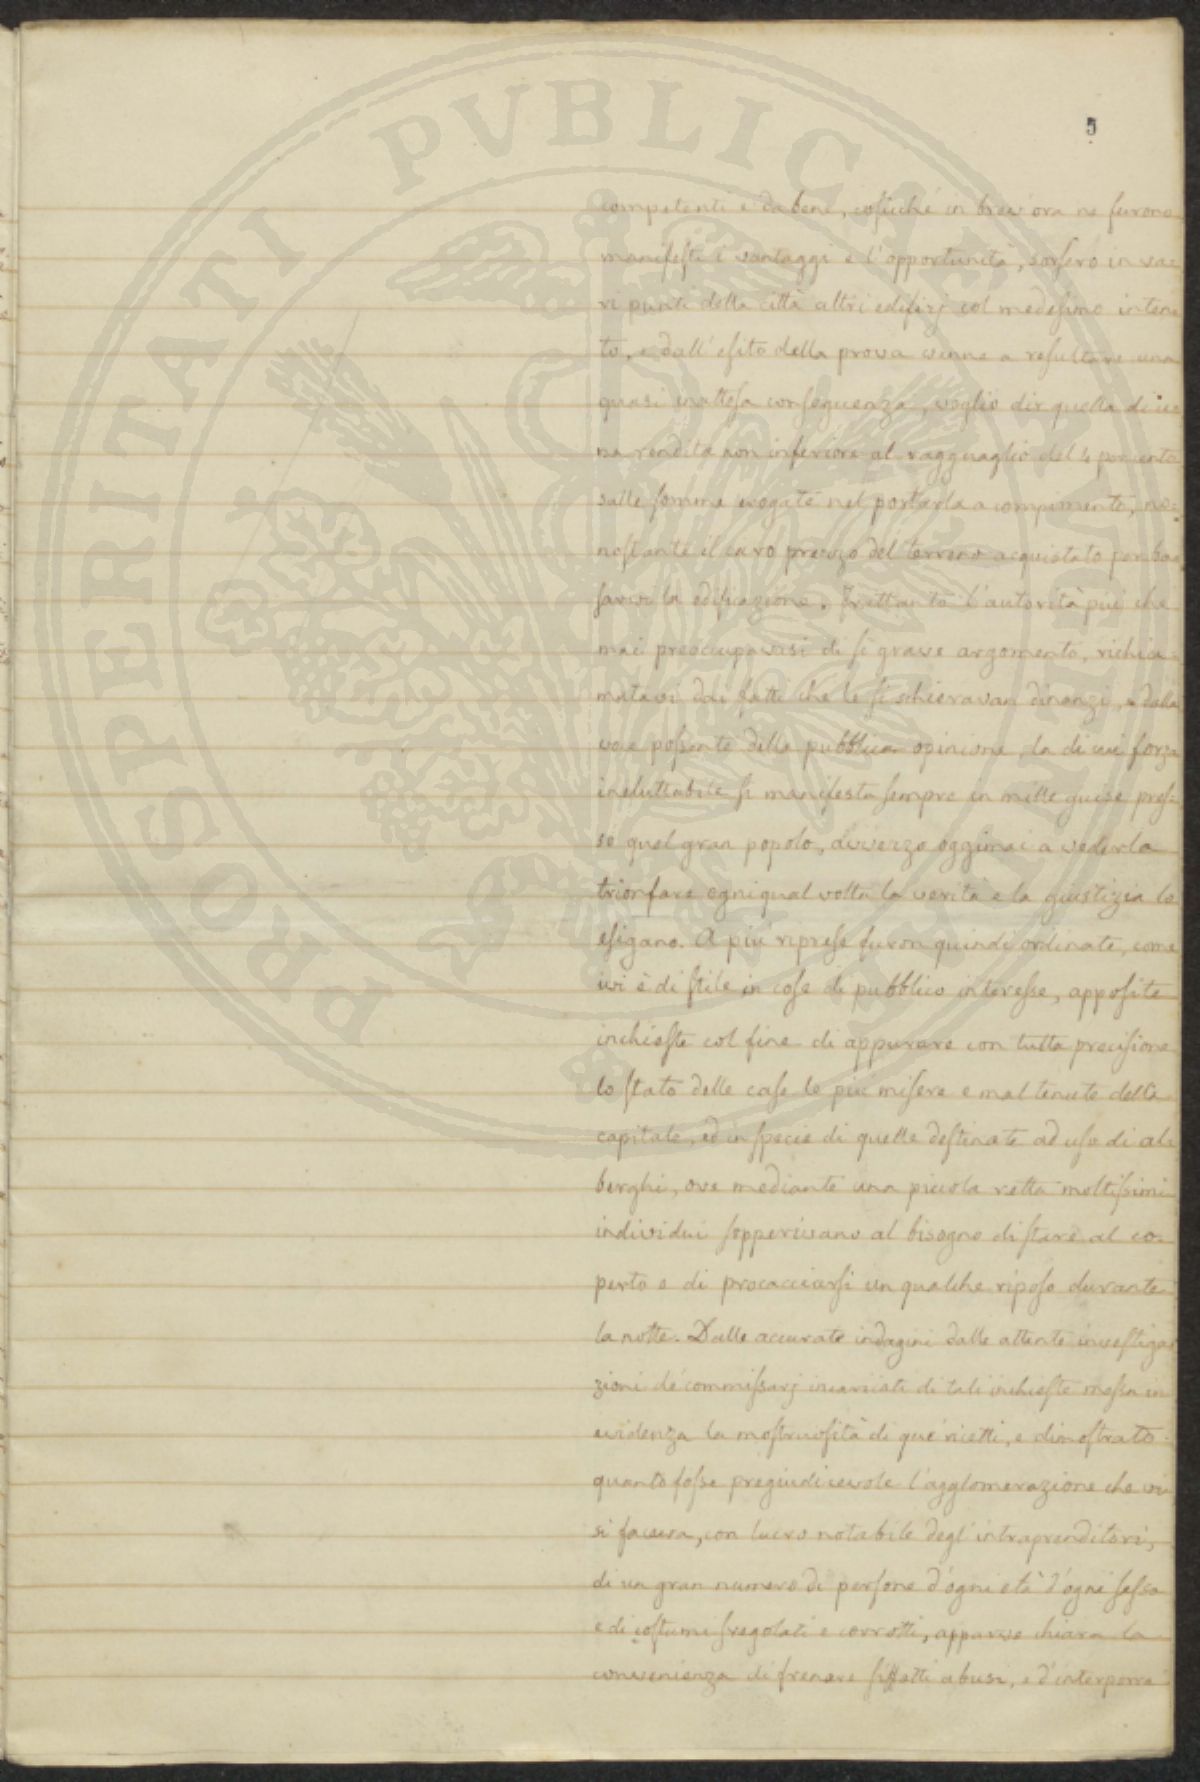 5
competenti e dabene, cosicché in brev'ora ne furono
manifesti i vantaggi e l'opportunità, sorsero in va=
ri punti della città altri edifizj col medesimo inten=
to, e dall'esito della prova venne a resultare una
quasi inattesa conseguenza, voglio dir quella di u=
na rendita non inferiore al ragguaglio del 4 per cento
sulle somme erogate nel portarla a compimento, no=
nostante il caro prezzo del terreno acquistato per ba=
sarvi la edificazione. Frattanto l'autorità più che
mai preoccupavasi di sì grave argomento, richia=
matavi dai fatti che le si schieravan dinanzi, e dalla
voce possente della pubblica opinione, la di cui forza
ineluttabile si manifesta sempre in mille guise pres=
so quel gran popolo, avvezzo oggimai a vederla
trionfare ogniqualvolta la verità e la giustizia lo
esigano. A più riprese furon quindi ordinate, come
ivi è di stile in cose di pubblico interesse, apposite
inchieste col fine di appurare con tutta precisione
lo stato delle case le più misere e mal tenute della
capitale, ed in specie di quelle destinate ad uso di al=
berghi, ove mediante una piccola retta moltissimi
individui sopperivano al bisogno di stare al co=
perto e di procacciarsi un qualche riposo durante
la notte. Dalle accurate indagini dalle attente investiga=
zioni de' commissarj incaricati di tali inchieste messa in
evidenza la mostruosità di que' ricetti, e dimostrato
quanto fosse pregiudicevole l'agglomerazione che vi
si faceva, con lucro notabile degl'intraprenditori,
di un gran numero di persone d'ogni età d'ogni sesso
e di costumi sregolati e corrotti, apparve chiara la
convenienza di frenare siffatti abusi, e d'interporre
PROSPERITATI PVBLICAE AVGENDAE